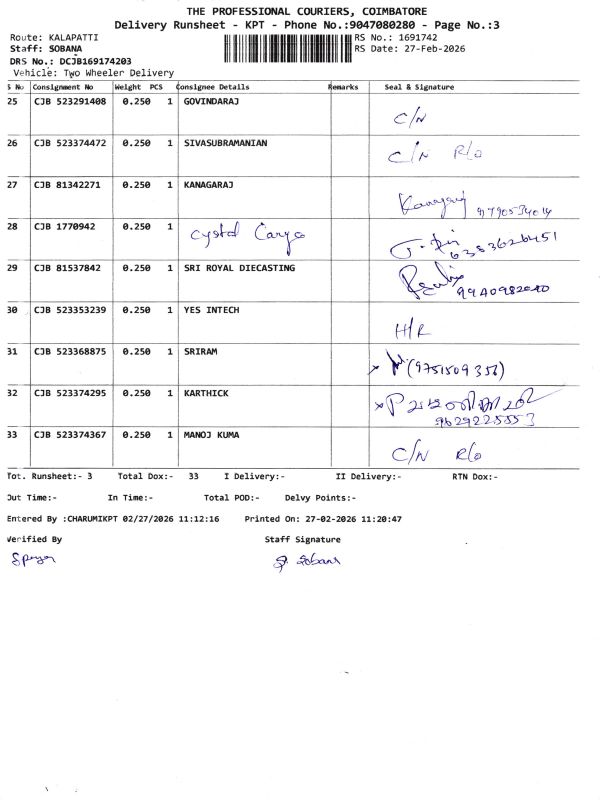 THE PROFESSIONAL COURIERS, COIMBATORE
Delivery Runsheet - KPT - Phone No.:9047080280 - Page No.:3
Route: KALAPATTI RS No.: 1691742
Staff: SOBANA RS Date: 27-Feb-2026
DRS No.: DCJB169174203
Vehicle: Two Wheeler Delivery
S No Consignment No Weight PCS Consignee Details Remarks Seal & Signature
25 CJB 523291408 0.250 1 GOVINDARAJ C/N
26 CJB 523374472 0.250 1 SIVASUBRAMANIAN C/N R/O
27 CJB 81342271 0.250 1 KANAGARAJ
28 CJB 1770942 0.250 1 Cystal Cargo 6383626451
29 CJB 81537842 0.250 1 SRI ROYAL DIECASTING
30 CJB 523353239 0.250 1 YES INTECH H/R
31 CJB 523368875 0.250 1 SRIRAM (9751509356)
32 CJB 523374295 0.250 1 KARTHICK 9629225553
33 CJB 523374367 0.250 1 MANOJ KUMA C/N R/O
Tot. Runsheet:- 3 Total Dox:- 33 I Delivery:- II Delivery:- RTN Dox:-
Out Time:- In Time:- Total POD:- Delvy Points:-
Entered By :CHARUMIKPT 02/27/2026 11:12:16 Printed On: 27-02-2026 11:20:47
Verified By Staff Signature